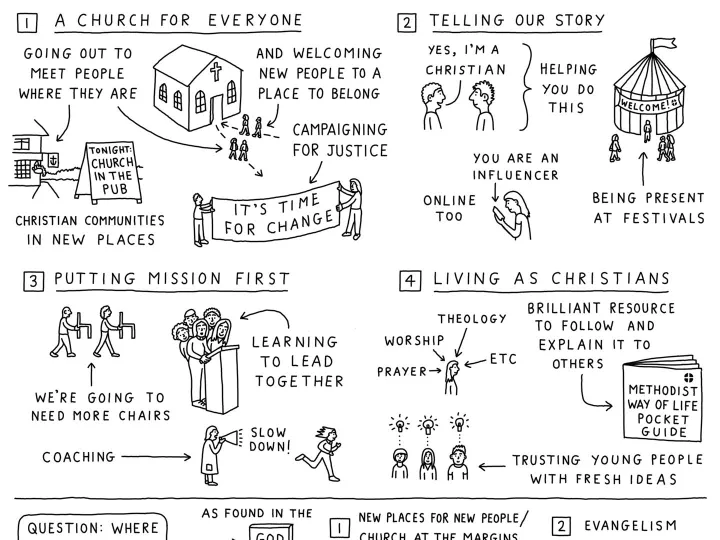 1 A CHURCH FOR EVERYONE
GOING OUT TO
MEET PEOPLE
WHERE THEY ARE
AND WELCOMING
NEW PEOPLE TO A
PLACE TO BELONG
CAMPAIGNING
FOR JUSTICE
TONIGHT:
CHURCH
IN THE
PUB
CHRISTIAN COMMUNITIES
IN NEW PLACES
IT'S TIME
FOR CHANGE
2 TELLING OUR STORY
YES, I'M A
CHRISTIAN
HELPING
YOU DO
THIS
WELCOME!
YOU ARE AN
INFLUENCER
ONLINE
TOO
BEING PRESENT
AT FESTIVALS
3 PUTTING MISSION FIRST
LEARNING
TO LEAD
TOGETHER
WE'RE GOING TO
NEED MORE CHAIRS
COACHING
SLOW
DOWN!
4 LIVING AS CHRISTIANS
THEOLOGY
WORSHIP
PRAYER
ETC
BRILLIANT RESOURCE
TO FOLLOW AND
EXPLAIN IT TO
OTHERS
METHODIST
WAY OF LIFE
POCKET
GUIDE
TRUSTING YOUNG PEOPLE
WITH FRESH IDEAS
QUESTION: WHERE
AS FOUND IN THE
GOD
1 NEW PLACES FOR NEW PEOPLE/
CHURCH AT THE MARGINS
2 EVANGELISM